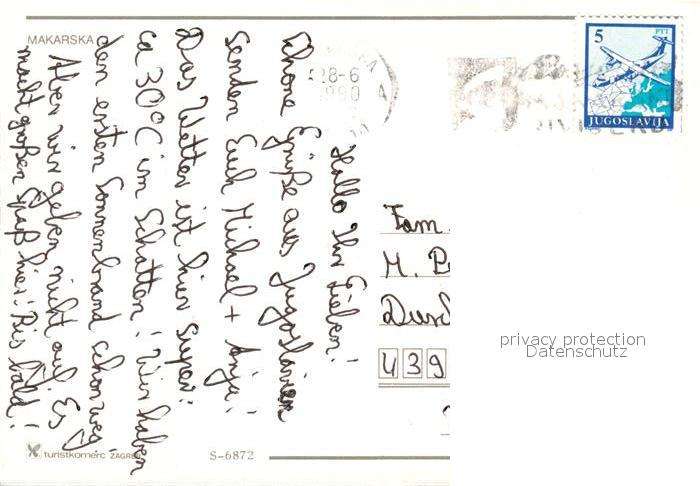 MAKARSKA
Hallo Ihr Lieben!
Schöne Grüße aus Jugoslavien
senden Euch Michael + Anja!
Das Wetter ist hier super!
ca 30°C im Schatten! Wir haben
den ersten Sonnenbrand schon weg!
Aber wir geben nicht auf. Es
macht großen Spaß hier! Bis bald!
turistkomerc ZAGREB
S-6872
28-6
1990
5
PTT
JUGOSLAVIJA
Fam.
M.
439
privacy protection
Datenschutz